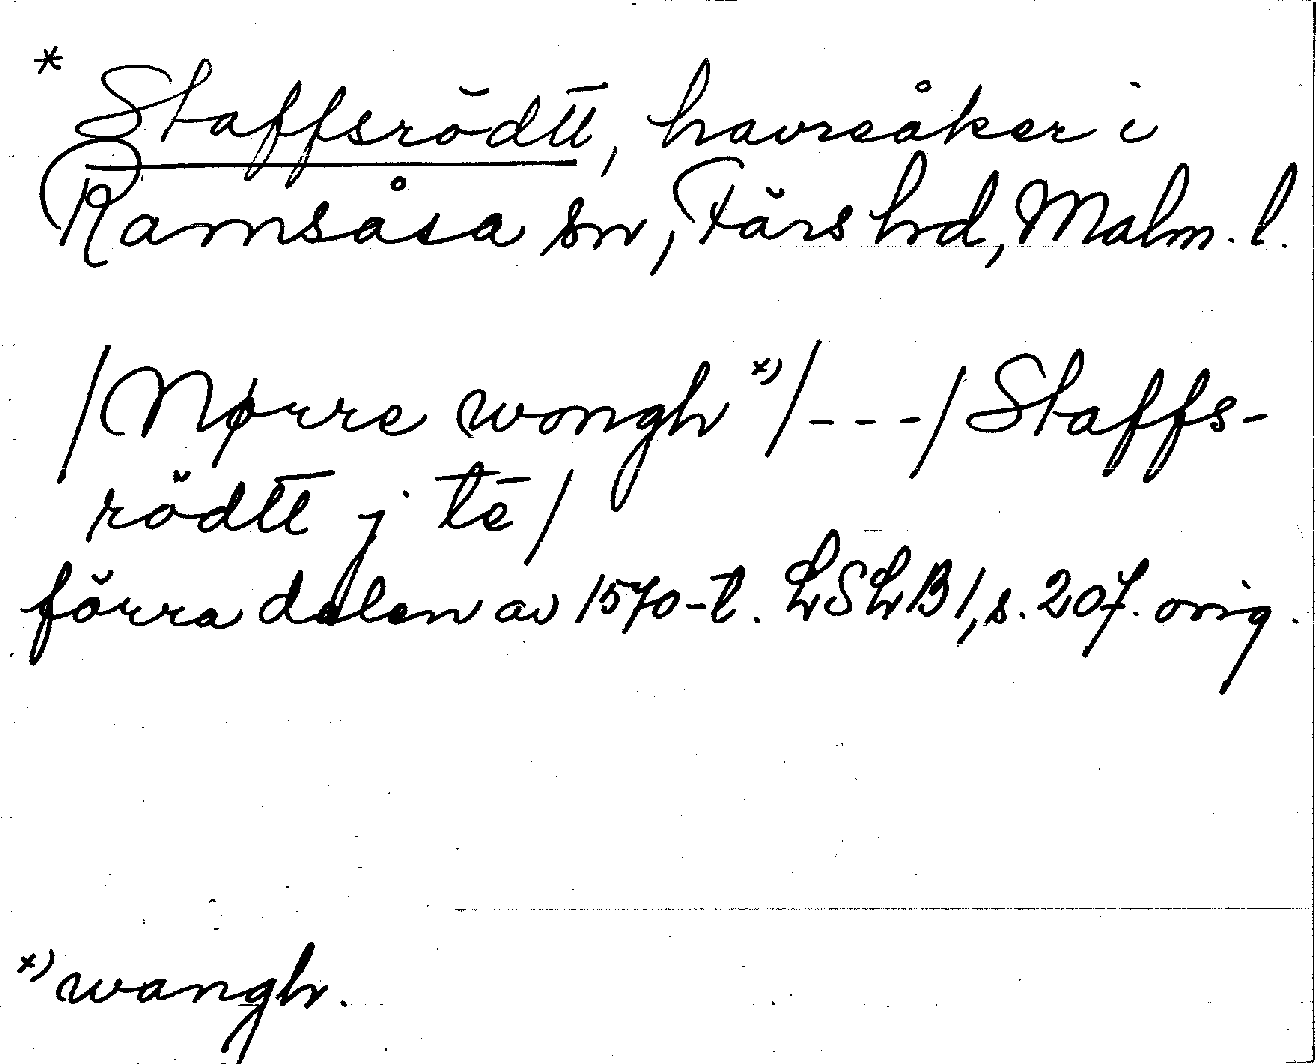 * Staffsrödtt, havreåker i
Ramsåsa sn, Färs hd, Malm. l.
/Nørre wongh x)/ - - - / Staffs-
rödtt j tē /
förra delen av 1570-t. LSLB 1, s. 207. orig.
x) wangh.